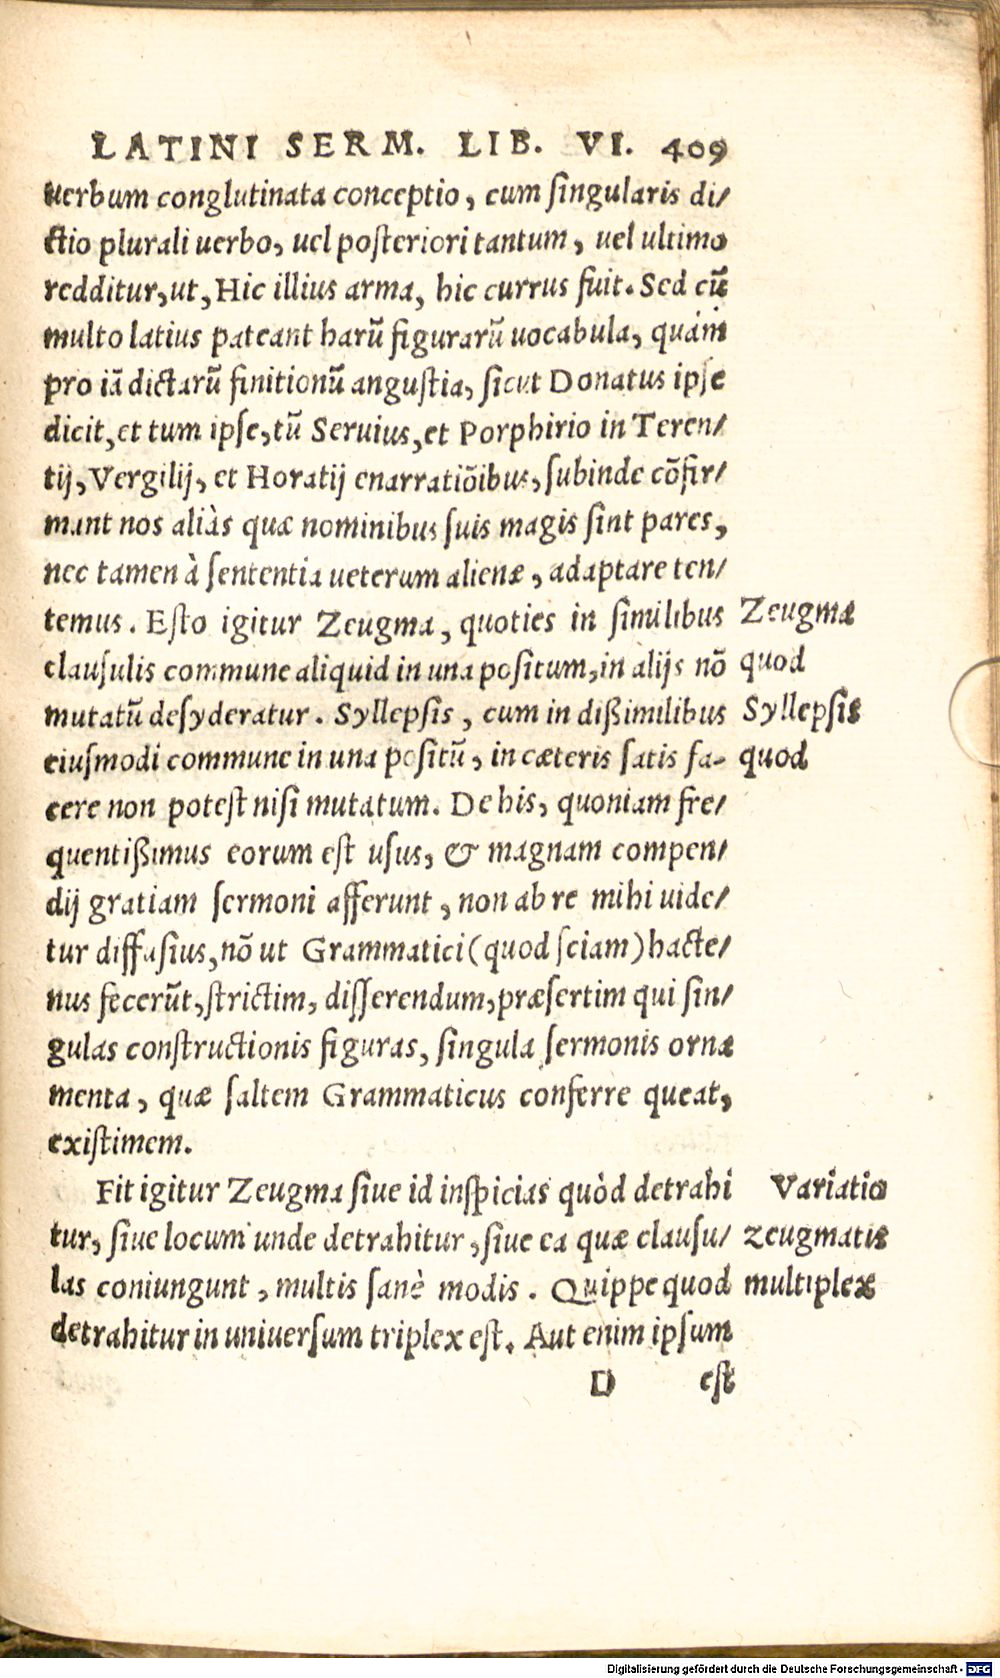 LATINI SERM. LIB. VI. 409
uerbum conglutinata conceptio, cum singularis di/
ctio plurali uerbo, uel posteriori tantum, uel ultimo
redditur, ut, Hic illius arma, hic currus fuit. Sed cū
multo latius pateant harū figurarū uocabula, quàm
pro iā dictarū finitionū angustia, sicut Donatus ipse
dicit, et tum ipse, tū Seruius, et Porphirio in Teren/
tij, Vergilij, et Horatij enarratiōibus, subinde cōfir/
mant nos aliàs quæ nominibus suis magis sint pares,
nec tamen à sententia ueterum alienæ, adaptare ten/
temus. Esto igitur Zeugma, quoties in similibus
clausulis commune aliquid in una positum, in alijs nō
mutatū desyderatur. Syllepsis, cum in dißimilibus
eiusmodi commune in una positū, in cæteris satis fa-
cere non potest nisi mutatum. De his, quoniam fre/
quentißimus eorum est usus, & magnam compen/
dij gratiam sermoni afferunt, non ab re mihi uide/
tur diffusius, nō ut Grammatici (quod sciam) hacte/
nus fecerūt, strictim, disserendum, præsertim qui sin/
gulas constructionis figuras, singula sermonis ornæ
menta, quæ saltem Grammaticus conferre queat,
existimem.
Fit igitur Zeugma siue id inspicias quòd detrahi
tur, siue locum unde detrahitur, siue ea quæ clausu/
las coniungunt, multis sanè modis. Quippe quod
detrahitur in uniuersum triplex est. Aut enim ipsum
D est
Zeugmæ
quod
Syllepsis
quod
Variatio
zeugmatis
multiplex
Digitalisierung gefördert durch die Deutsche Forschungsgemeinschaft - DFG